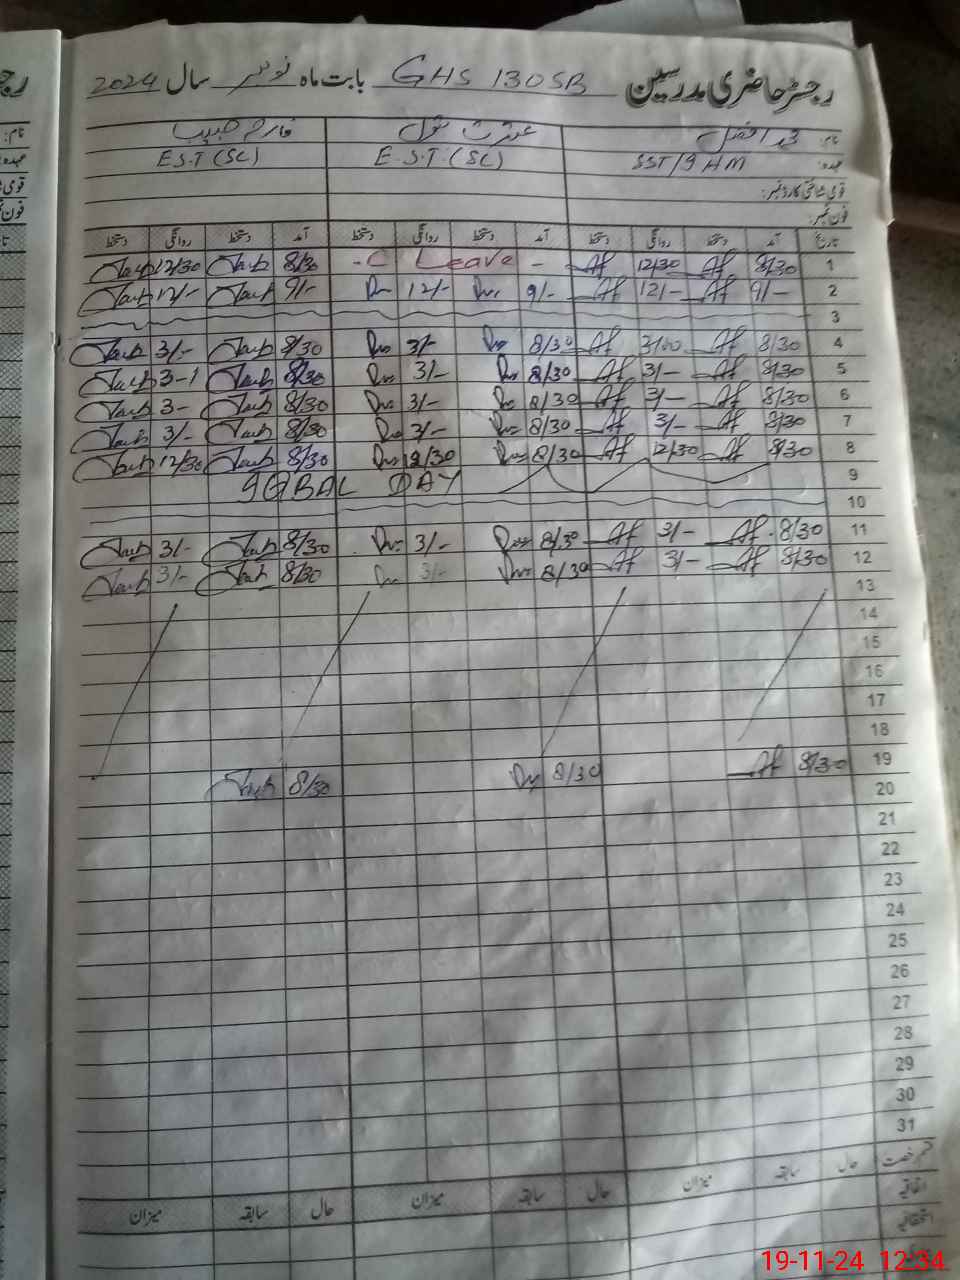 رجسٹر حاضری مدرسین GHS 130SB بابت ماہ نومبر سال 2024
نام: محمد افضل
عہدہ: SST/9 HM E.S.T.(SC) E.S.T(SC)
قومی شناختی کارڈ نمبر:
فون نمبر:
تاریخ آمد دستخط روانگی دستخط آمد دستخط روانگی دستخط آمد دستخط روانگی دستخط
1 8/30 12/30 - C Leave - 8/30 12/30
2 9/- 12/- 9/- 12/- 9/- 12/-
3
4 8/30 3/00 8/30 3/- 8/30 3/-
5 8/30 3/- 8/30 3/- 8/30 3-1
6 8/30 3/- 8/30 3/- 8/30 3-
7 8/30 3/- 8/30 3/- 8/30 3/-
8 8/30 12/30 8/30 12/30 8/30 12/30
9 9QBAL DAY
10
11 8/30 3/- 8/30 3/- 8/30 3/-
12 8/30 3/- 8/30 3/- 8/30 3/-
13
14
15
16
17
18
19 8/30 8/30 8/30
20
21
22
23
24
25
26
27
28
29
30
31
قسم رخصت حال سابقہ میزان حال سابقہ میزان حال سابقہ میزان
اتفاقیہ
استحقاقیہ
19-11-24 12:34